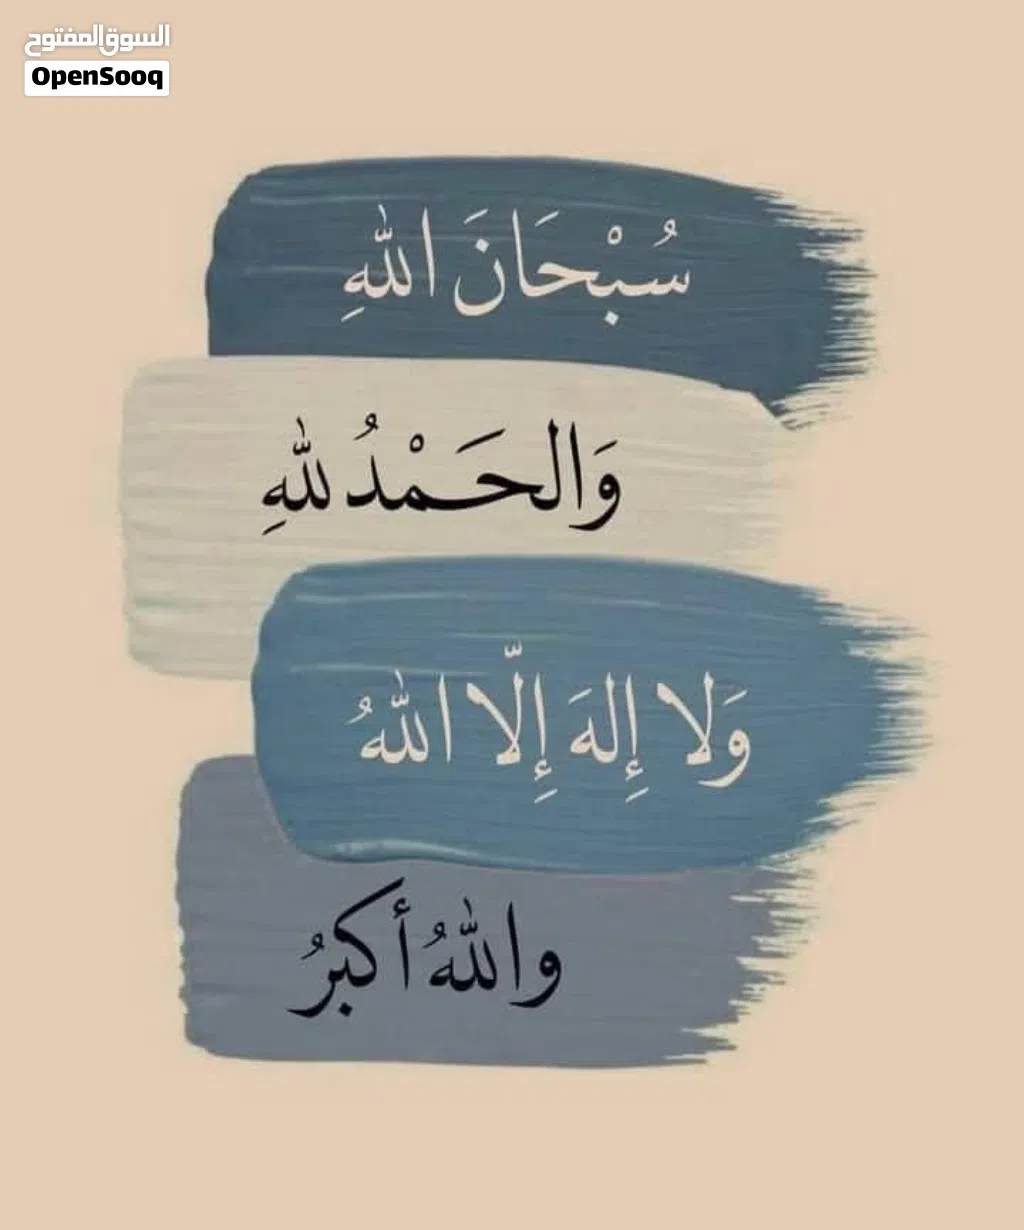 السوق المفتوح
OpenSooq
سُبْحَانَ اللهِ
وَالحَمْدُ للهِ
وَلا إِلهَ إِلّا اللهُ
واللهُ أكبرُ